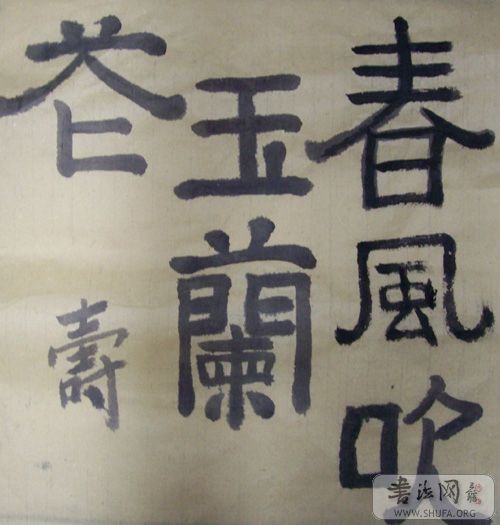 春風吹
玉蘭
花
壽
書法网
WWW.SHUFA.ORG